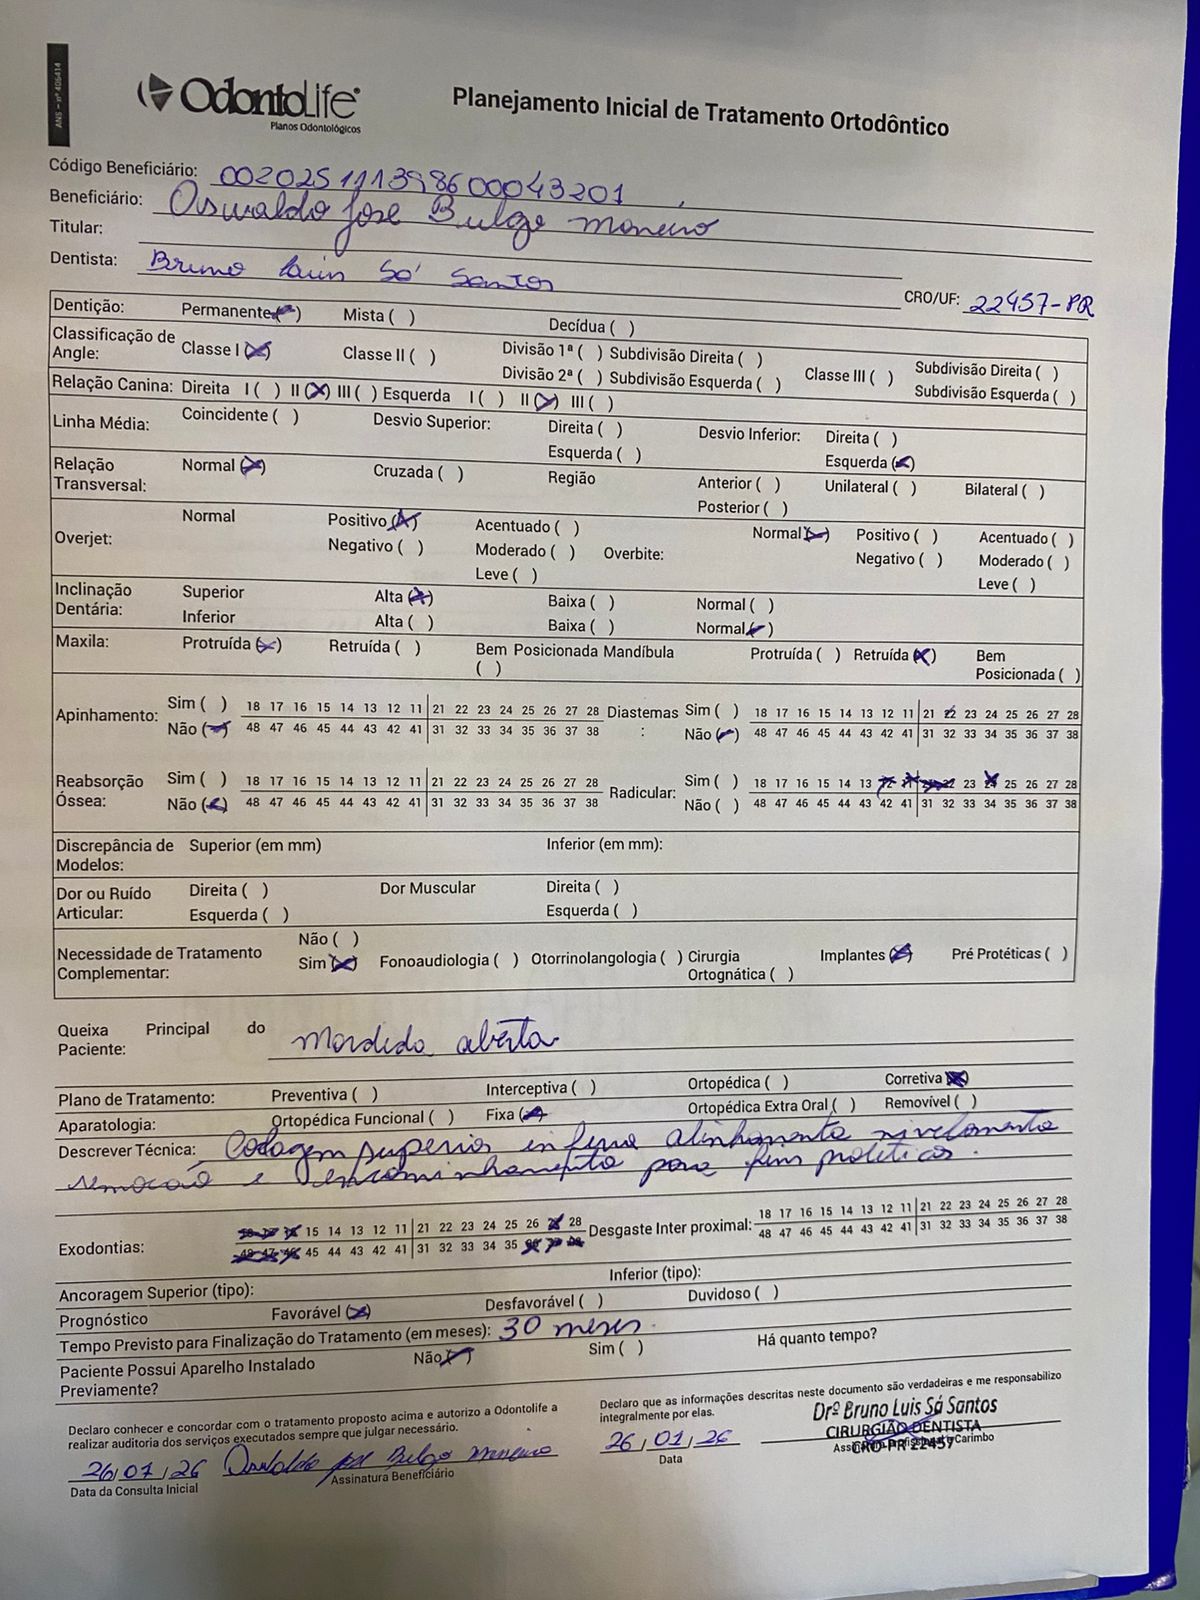 ANS - nº 406414
OdontoLife
Planos Odontológicos
Planejamento Inicial de Tratamento Ortodôntico
Código Beneficiário: 002025111398600043201
Beneficiário: Oswaldo Jose Bulgo Moneiro
Titular:
Dentista: Bruno Luis Sá Santos CRO/UF: 22457-PR
Dentição: Permanente (x) Mista ( ) Decídua ( )
Classificação de Angle: Classe I (x) Classe II ( ) Divisão 1ª ( ) Subdivisão Direita ( ) Divisão 2ª ( ) Subdivisão Esquerda ( ) Classe III ( ) Subdivisão Direita ( ) Subdivisão Esquerda ( )
Relação Canina: Direita I ( ) II (x) III ( ) Esquerda I ( ) II (x) III ( )
Linha Média: Coincidente ( ) Desvio Superior: Direita ( ) Esquerda ( ) Desvio Inferior: Direita ( ) Esquerda (x)
Relação Transversal: Normal (x) Cruzada ( ) Região Anterior ( ) Posterior ( ) Unilateral ( ) Bilateral ( )
Overjet: Normal Positivo (x) Negativo ( ) Acentuado ( ) Moderado ( ) Leve ( ) Overbite: Normal (x) Positivo ( ) Negativo ( ) Acentuado ( ) Moderado ( ) Leve ( )
Inclinação Dentária: Superior Alta (x) Baixa ( ) Normal ( )
Inferior Alta ( ) Baixa ( ) Normal (x)
Maxila: Protruída (x) Retruída ( ) Bem Posicionada ( ) Mandíbula Protruída ( ) Retruída (x) Bem Posicionada ( )
Apinhamento: Sim ( ) 18 17 16 15 14 13 12 11 21 22 23 24 25 26 27 28 Diastemas: Sim ( ) 18 17 16 15 14 13 12 11 21 22 23 24 25 26 27 28
Não (x) 48 47 46 45 44 43 42 41 31 32 33 34 35 36 37 38 Não (x) 48 47 46 45 44 43 42 41 31 32 33 34 35 36 37 38
Reabsorção Óssea: Sim ( ) 18 17 16 15 14 13 12 11 21 22 23 24 25 26 27 28 Radicular: Sim ( ) 18 17 16 15 14 13 12 11 21 22 23 24 25 26 27 28
Não (x) 48 47 46 45 44 43 42 41 31 32 33 34 35 36 37 38 Não ( ) 48 47 46 45 44 43 42 41 31 32 33 34 35 36 37 38
Discrepância de Modelos: Superior (em mm) Inferior (em mm):
Dor ou Ruído Articular: Direita ( ) Esquerda ( ) Dor Muscular Direita ( ) Esquerda ( )
Necessidade de Tratamento Complementar: Não ( ) Sim (x) Fonoaudiologia ( ) Otorrinolangologia ( ) Cirurgia Ortognática ( ) Implantes (x) Pré Protéticas ( )
Queixa Principal do Paciente: Mordida aberta
Plano de Tratamento: Preventiva ( ) Interceptiva ( ) Ortopédica ( ) Corretiva (x)
Aparatologia: Ortopédica Funcional ( ) Fixa (x) Ortopédica Extra Oral ( ) Removível ( )
Descrever Técnica: Colagem superior inferior alinhamento nivelamento
remoção e encaminhamento para fins protéticos.
Exodontias: 18 17 16 15 14 13 12 11 21 22 23 24 25 26 27 28 Desgaste Inter proximal: 18 17 16 15 14 13 12 11 21 22 23 24 25 26 27 28
48 47 46 45 44 43 42 41 31 32 33 34 35 36 37 38 48 47 46 45 44 43 42 41 31 32 33 34 35 36 37 38
Ancoragem Superior (tipo): Inferior (tipo):
Prognóstico Favorável (x) Desfavorável ( ) Duvidoso ( )
Tempo Previsto para Finalização do Tratamento (em meses): 30 meses.
Paciente Possui Aparelho Instalado Previamente? Não (x) Sim ( ) Há quanto tempo?
Declaro conhecer e concordar com o tratamento proposto acima e autorizo a Odontolife a
realizar auditoria dos serviços executados sempre que julgar necessário.
26/01/26 Oswaldo Jose Bulgo Moneiro
Data da Consulta Inicial Assinatura Beneficiário
Declaro que as informações descritas neste documento são verdadeiras e me responsabilizo
integralmente por elas.
26/01/26
Data
Drº Bruno Luis Sá Santos
CIRURGIÃO DENTISTA
CRO-PR 22457
Assinatura Profissional e Carimbo